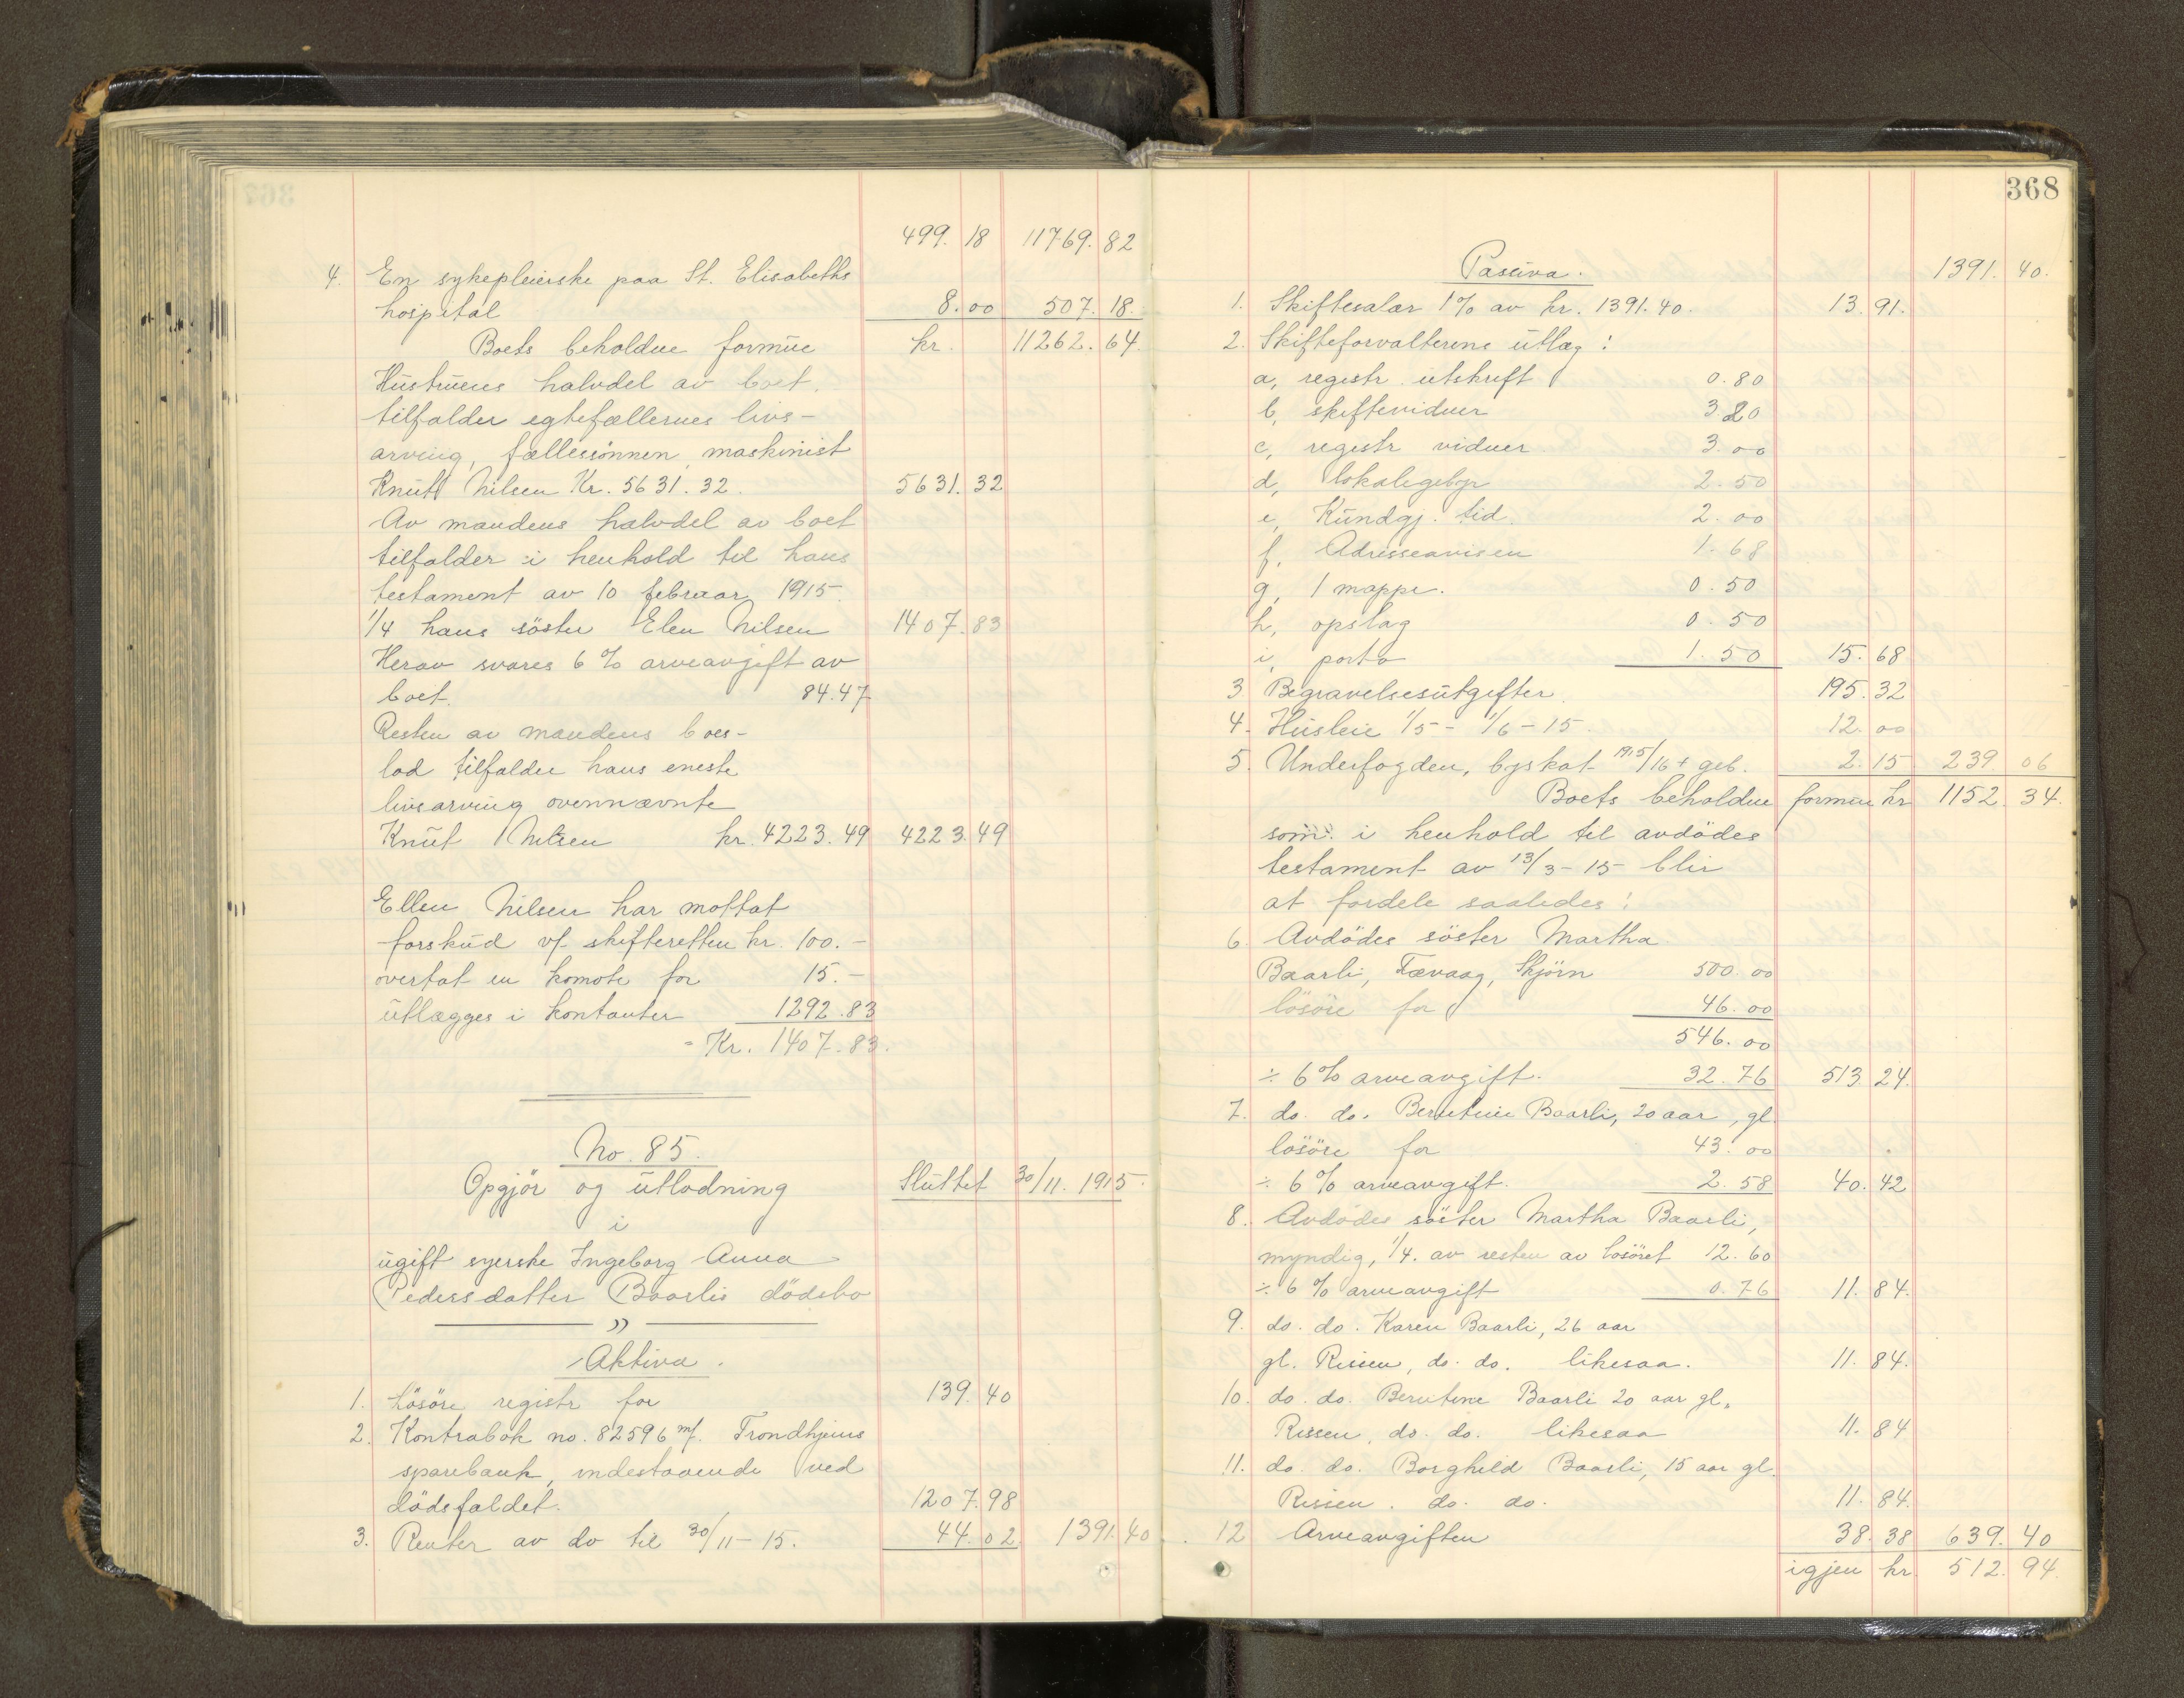 499. 18 11769. 82
4. En sykepleierske paa St. Elisabeths
hospital 8. 00 507. 18.
Boets beholdne formue kr. 11262. 64.
Hustruens halvdel av boet.
tilfalder egtefællernes livs-
arving, fællessönnen, maskinist
Knut Nilsen Kr. 5631. 32. 5631. 32
Av mandens halvdel av boet
tilfalder i henhold til hans
testament av 10 februar 1915.
1/4 hans söster Elen Nilsen 1407. 83
Herav svares 6 % arveavgift av
boet. 84.47
Resten av mandens boes-
lod tilfalder hans eneste
livsarving ovennævnte
Knut Nilsen kr. 4223. 49 4223. 49
Ellen Nilsen har mottat
forskud v/ skifteretten kr. 100. -
overtat en komode for 15. -
utlægges i kontanter 1292. 83
= Kr. 1407. 83.
No. 85.
Opgjör og utlodning Sluttet 30/11. 1915.
i
ugift syerske Ingeborg Anna
Pedersdatter Baarlis dödsbo
Aktiva.
1. Lösöre registr for 139. 40
2. Kontrabok no. 82596 m/ Trondhjems
sparebank, indestaaende ved
dödsfaldet. 1207. 98
3. Renter av do til 30/11-15. 44. 02 1391. 40
368
Passiva. 1391. 40.
1. Skiftesalær 1 % av kr. 1391. 40. 13. 91.
2. Skifteforvalterens utlæg :
a, registr. utskrift 0. 80
b, skiftevidner 3. 20
c, registr vidner 3. 00
d, lokalegebyr 2. 50
e, Kundgj. tid. 2. 00
f, Adresseavisen 1. 68
g, 1 mappe. 0. 50
h, opslag 0. 50
i, porto 1. 50 15. 68
3 Begravelsesutgifter 195. 32
4. Husleie 1/5 - 1/6 - 15. 12. 00
5. Underfogden, byskat 1915/16 + geb. 2. 15 239. 06
Boets beholdne formue kr 1152. 34.
som i henhold til avdödes
testament av 13/3-15 blir
at fordele saaledes :
6. Avdödes söster Martha
Baarli, Fævaag, Skjörn 500. 00
lösöre for 46. 00
546. 00
÷ 6 % arveavgift. 32. 76 513. 24.
7. do. do. Berntine Baarli, 20 aar, gl
lösöre for 43. 00
÷ 6 % arveavgift. 2. 58 40. 42
8. Avdödes söster Martha Baarli,
myndig, 1/4. av resten av lösöret 12. 60
÷ 6 % arveavgift 0. 76 11. 84.
9. do. do. Karen Baarli, 26 aar
gl. Rissen, do. do. likesaa. 11. 84.
10. do. do. Berntine Baarli 20 aar gl.
Rissen, do. do. likesaa 11. 84
11. do. do. Borghild Baarli, 15 aar gl.
Rissen. do. do. 11. 84.
12 Arveavgiften 38. 38 639. 40
igjen kr 512. 94.